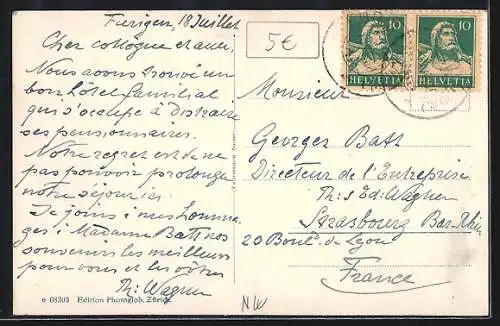 Fürigen, 18 Juillet
Cher collègue et ami,
Nous avons trouvé un
bon hôtel familial
qui s'occupe à distraire
ses pensionnaires.
Notre regret est de ne
pas pouvoir prolonger
notre séjour ici
Je joins à mes homma-
ges à Madame Batt nos
souvenirs les meilleurs
pour vous et les vôtres
Th: Wagner
e 08303 Edition Photoglob, Zürich
5€
10 10
HELVETIA HELVETIA
Monsieur
Georges Batt
Directeur de l'Entreprise
Th: & Ed: Wagner
Strasbourg Bas-Rhin
20 Boulv. de Lyon
France
NW